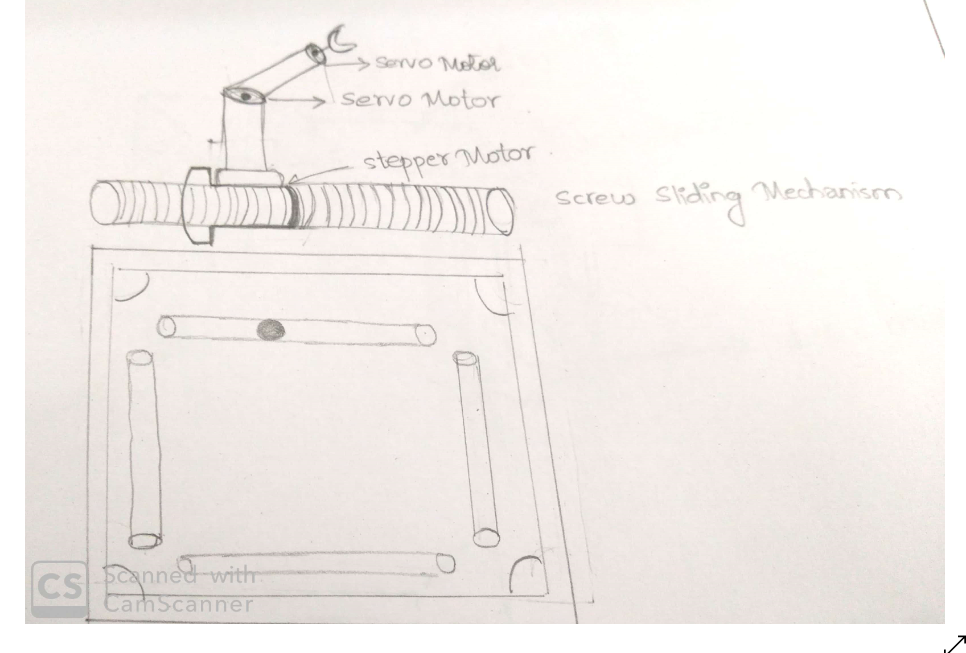 Servo Motor
Servo Motor
stepper Motor
Screw Sliding Mechanism
CS
Scanned with
CamScanner